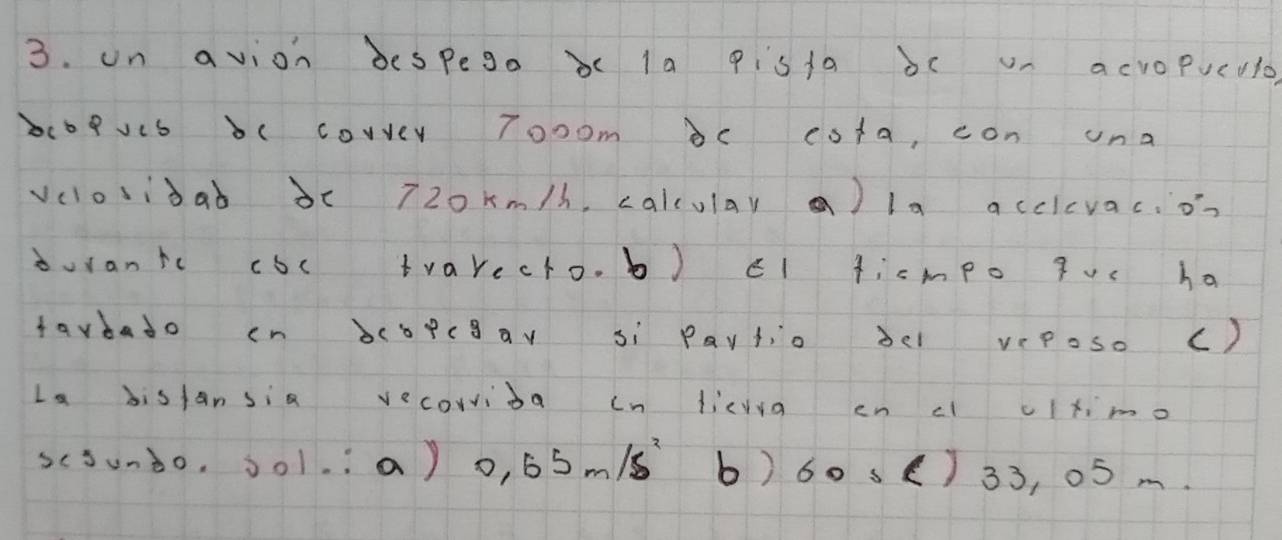 3. un avión despega de la pista de un aeropuerto,
despues de correr 7000m de esta, con una
velosidad de 720km/h. calcular a) la aceleración
durante ese trarecto. b) El tiempo que ha
tardado en despegar si partio del reposo c)
La distansia recorrida en tierra en el ultimo
segundo. sol.: a) 0,55m/s² b) 60s c) 33,05m.